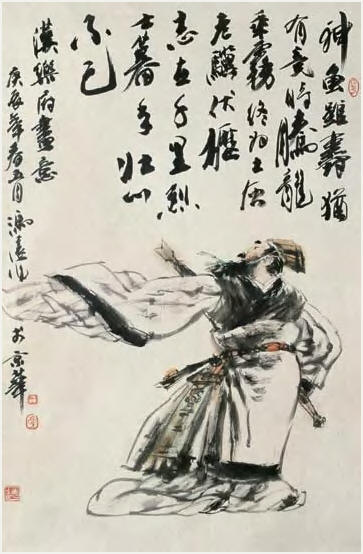 神龜雖壽猶
有竟時騰龍
乘霧終為土灰
老驥伏櫪
志在千里烈
士暮年壯心
不已
漢樂府畫意
庚辰年春五月馮遠作
於京華